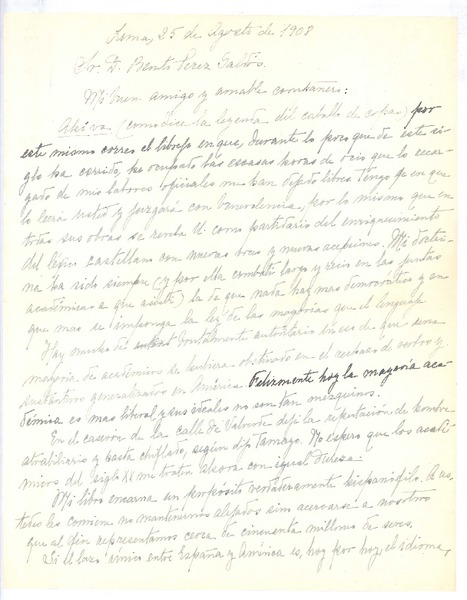 Lima, 25 de Agosto de 1908
Sr. D. Benito Perez Galdós.
Mi buen amigo y amable compañero:
Ahí va (como dice la leyenda del caballo de copas) por
este mismo correo el librejo en que, durante lo poco que de este si-
glo ha corrido, he ocupado las escasas horas de ocio que lo recar-
gado de mis labores oficiales me han dejado libres. Tengo fe en que
lo leerá usted y juzgará con benevolencia, por lo mismo que en
todas sus obras se revela U. como partidario del enriquecimiento
del léxico castellano con nuevas voces y nuevas acepciones. Mi doctri-
na ha sido siempre (y por ella combatí largo y recio en las juntas
académicas a que asistí) la de que nada hay mas democratico y en
que mas se imponga la ley de las mayorías que el lenguaje
Hay mucho de brutalmente autoritario en eso de que una
mayoría de académicos se hubiera obstinado en el rechazo de verbos y
sustantivos generalizados en América. Felizmente hoy la mayoría aca-
démica es mas liberal y sus ideales no son tan mezquinos.
En el caserón de la calle de Valverde dejé la reputación de hombre
atrabiliario y hasta chiflado, según dijo Tamayo. No espero que los acadé-
micos del siglo XX me traten ahora con igual dureza.
Mi libro encarna un propósito verdaderamente hispanófilo. A us-
tedes les conviene no mantenernos alejados sin acercarse a nosotros
que al fin representamos cerca de cincuenta millones de seres.
Si el lazo único entre España y América es, hoy por hoy, el idioma,